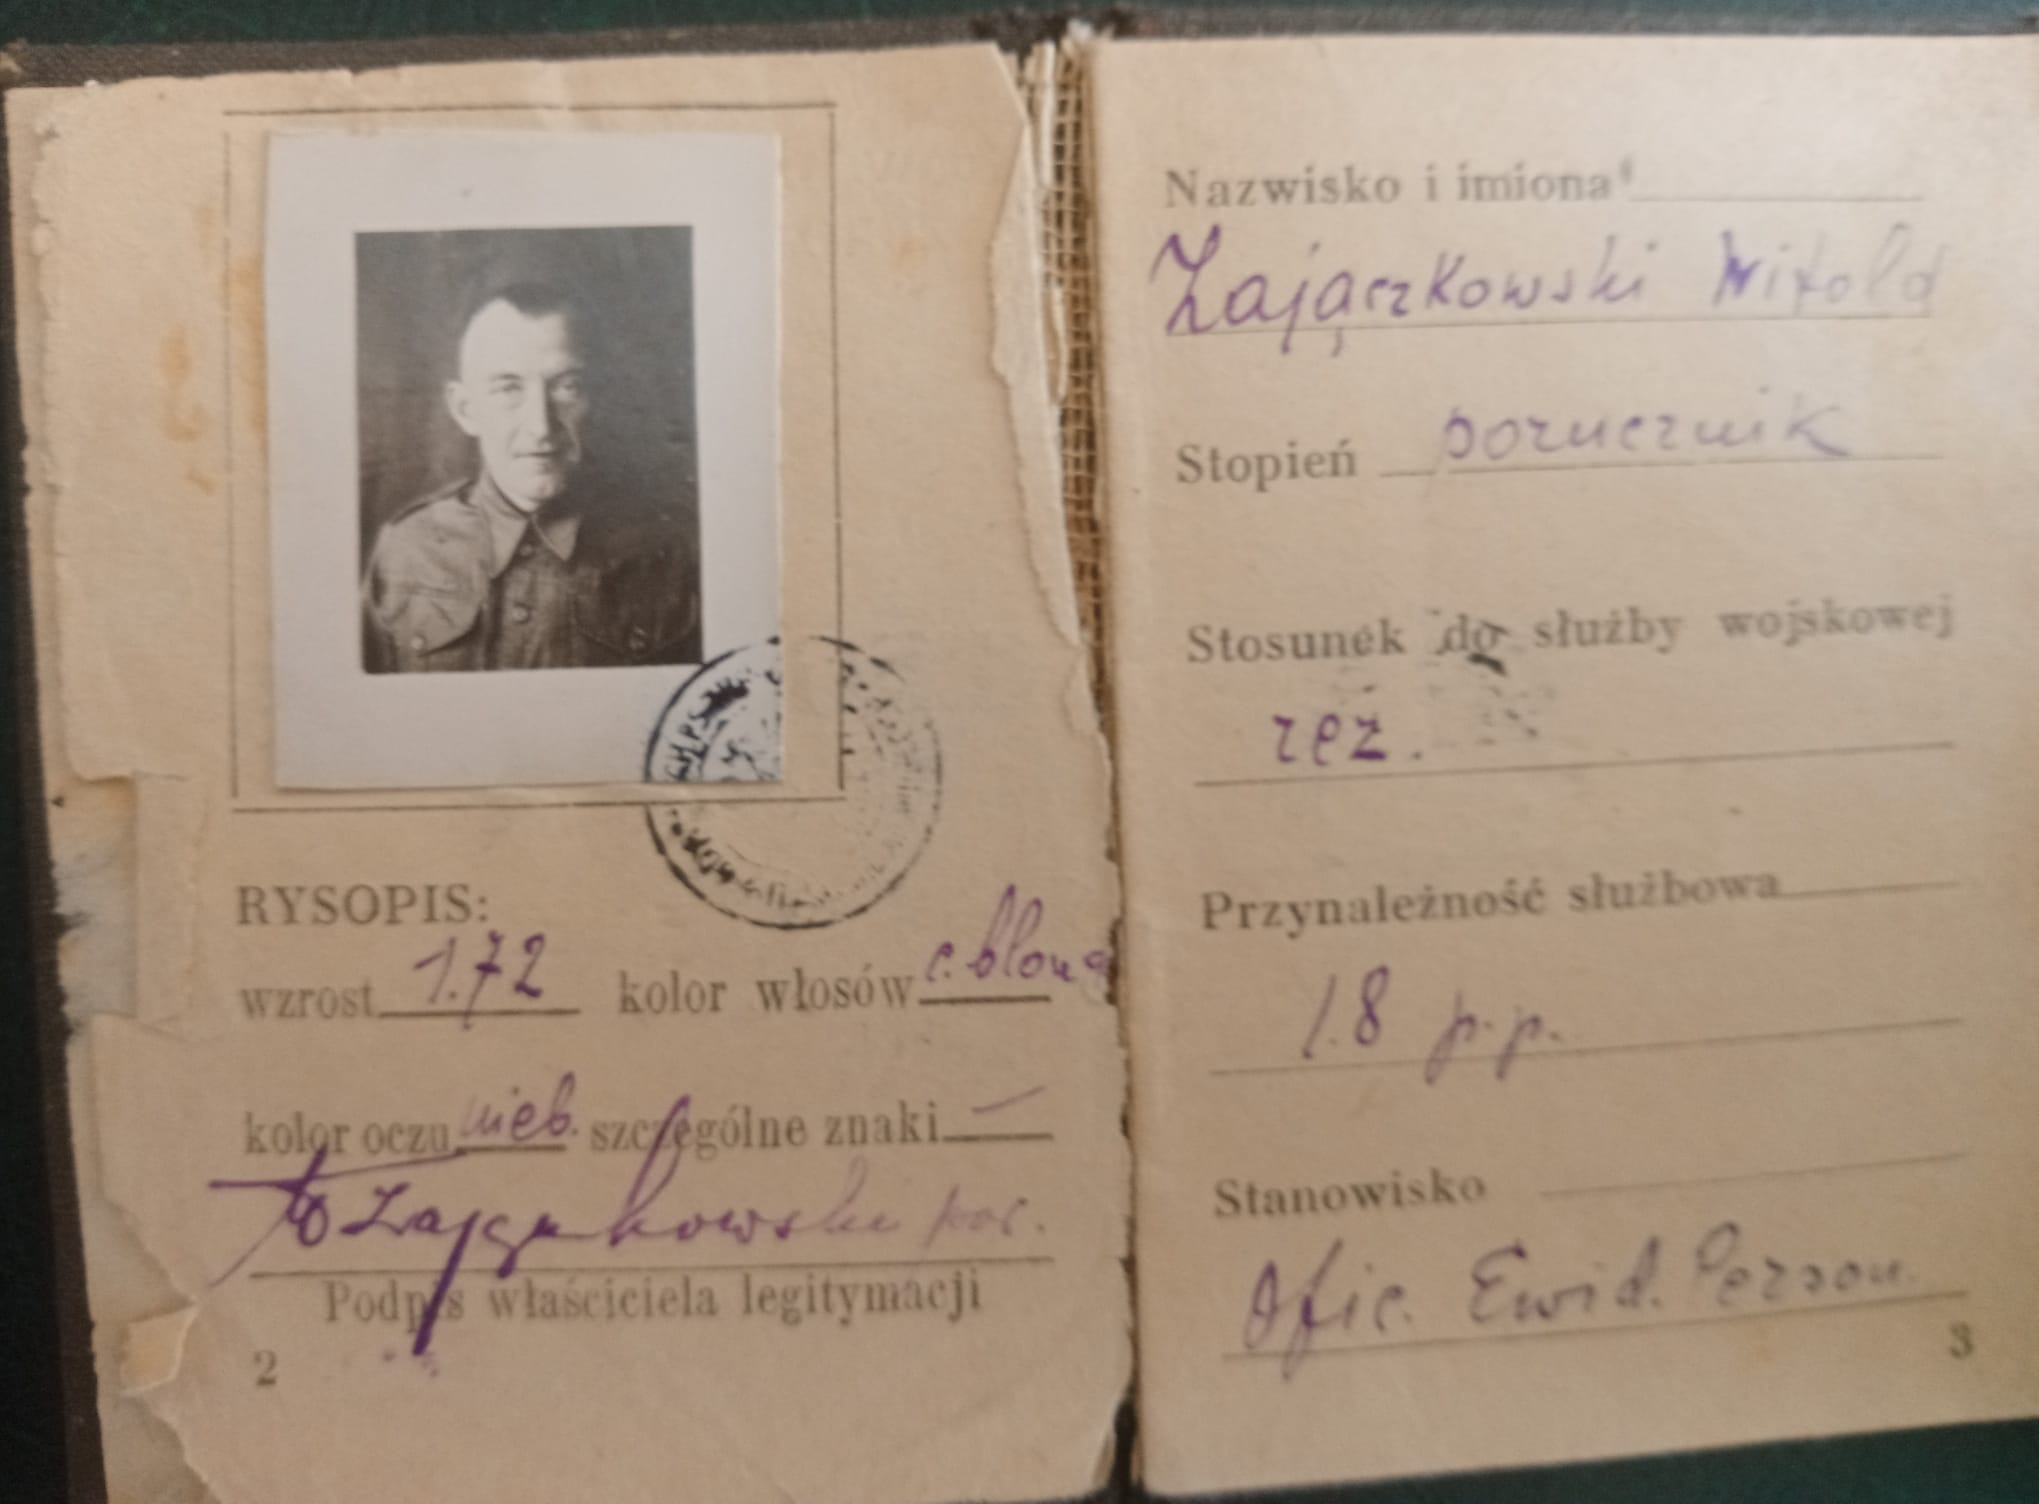 RYSOPIS:
wzrost 1.72 kolor włosów c. blond
kolor oczu nieb. szczególne znaki —
W Zajączkowski por.
Podpis właściciela legitymacji
2
Nazwisko i imiona
Zajączkowski Witold
Stopień porucznik
Stosunek do służby wojskowej
rez.
Przynależność służbowa
18 p.p.
Stanowisko
Ofic. Ewid. Person.
3